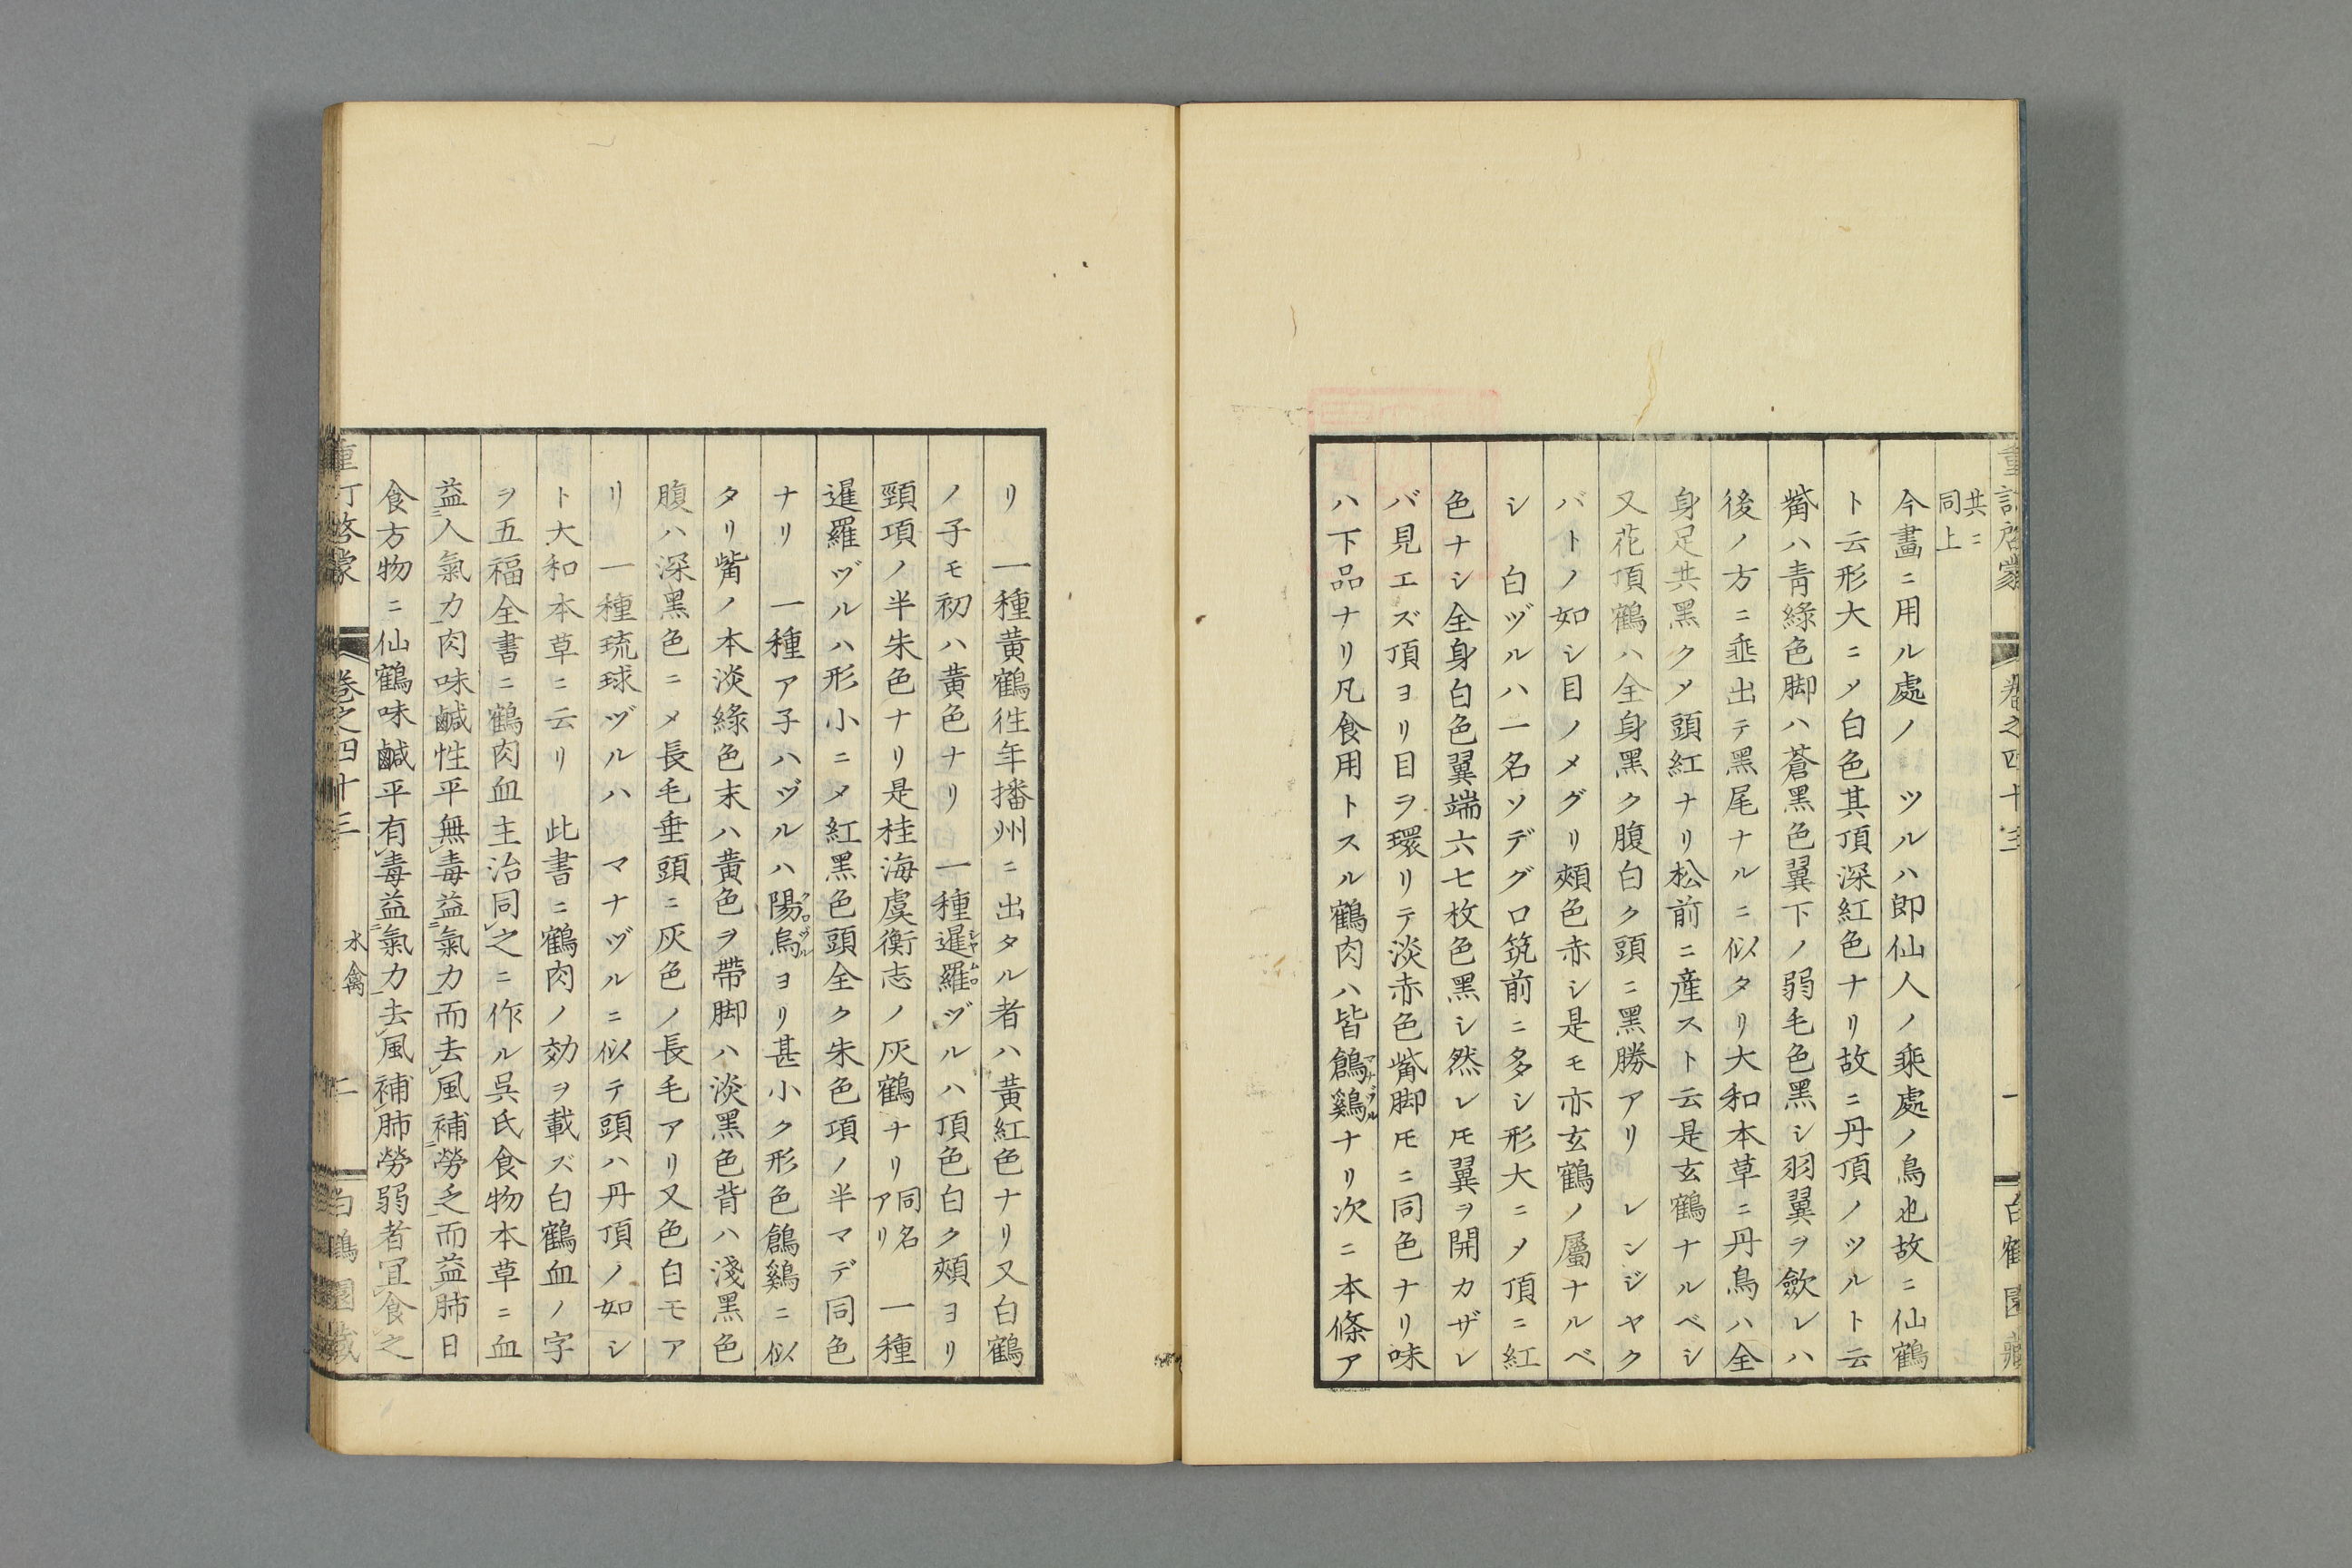 重訂啓蒙 卷之四十三 一 白鶴園藏
共ニ
同上
今畫ニ用ル處ノ ツルハ即仙人ノ乘處ノ鳥也故ニ仙鶴
ト云形大ニメ白色其頂深紅色ナリ故ニ丹頂ノツルト云
觜ハ青綠色脚ハ蒼黑色翼下ノ弱毛色黑シ羽翼ヲ歛レハ
後ノ方ニ垂出テ黑尾ナルニ似タリ大和本草ニ丹鳥ハ全
身足共黑クメ頭紅ナリ松前ニ産スト云是玄鶴ナルベシ
又花頂鶴ハ全身黑ク腹白ク頭ニ黑勝アリ レンジヤク
バトノ如シ目ノメグリ頰色赤シ是モ亦玄鶴ノ屬ナルベ
シ 白ヅルハ一名ソデグロ筑前ニ多シ形大ニメ頂ニ紅
色ナシ全身白色翼端六七枚色黑シ然レ𪜈翼ヲ開カザレ
バ見エズ頂ヨリ目ヲ環リテ淡赤色觜脚𪜈ニ同色ナリ味
ハ下品ナリ凡食用トスル鶴肉ハ皆鶬鷄マナヅルナリ次ニ本條ア
リ 一種黃鶴徃年播州ニ出タル者ハ黃紅色ナリ又白鶴
ノ子モ初ハ黃色ナリ 一種暹羅シヤムロヅルハ頂色白ク頰ヨリ
頸項ノ半朱色ナリ是桂海虞衡志ノ灰鶴ナリ同名アリ 一種
暹羅ヅルハ形小ニメ紅黑色頭全ク朱色項ノ半マデ同色
ナリ 一種ア子ハヅルハ陽烏クロヅルヨリ甚小ク形色鶬鷄ニ似
タリ觜ノ本淡綠色末ハ黃色ヲ帶脚ハ淡黑色背ハ淺黑色
腹ハ深黑色ニメ長毛垂頭ニ灰色ノ長毛アリ又色白モア
リ 一種琉球ヅルハ マナヅルニ似テ頭ハ丹頂ノ如シ
ト大和本草ニ云リ 此書ニ鶴肉ノ効ヲ載ズ白鶴血ノ字
ヲ五福全書ニ鶴肉血主治同之ニ作ル吳氏食物本草ニ血
益人氣力肉味鹹性平無毒益氣力而去風補勞乏而益肺日
食方物ニ仙鶴味鹹平有毒益氣力去風補肺勞弱者宜食之
重訂啓蒙 卷之四十三 水禽 二 白鶴園藏